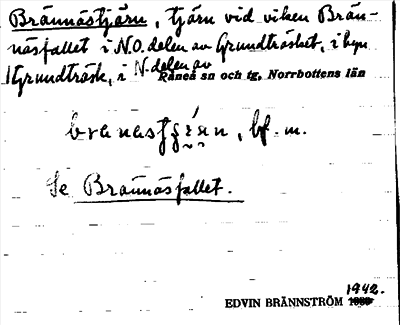 Brännästjärn, tjärn vid viken Brän-
näsfallet i N.O. delen av Grundträsket, i byn
Grundträsk, i N. delen av
Råneå sn och tg, Norrbottens län
bf. m.
Se Brännäsfallet.
1942.
EDVIN BRÄNNSTRÖM